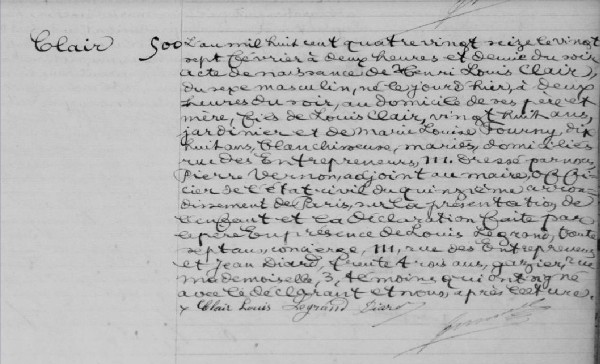 Clair 500 L'an mil huit cent quatre vingt seize le vingt
sept Février à deux heures et demie du soir
acte de naissance de Henri Louis Clair,
du sexe masculin, né le jour d'hier, à deux
heures du soir, au domicile de ses père et
mère, fils de Louis Clair, vingt huit ans,
jardinier et de Marie Louise Fourny, dix
huit ans, blanchisseuse, mariés, domiciliés
rue des Entrepreneurs, 111. Dressé par nous
Pierre Vernon, adjoint au maire, offi-
cier de l'état civil du quinzième arron-
dissement de Paris, sur la présentation de
l'enfant et la déclaration faite par
le père en présence de Louis Legrand, trente
sept ans, concierge, 111, rue des Entrepreneurs
et Jean Diard, trente trois ans, gazier, rue
Mademoiselle, 3, témoins qui ont signé
avec le déclarant et nous, après lecture.
Clair Louis Legrand Diard